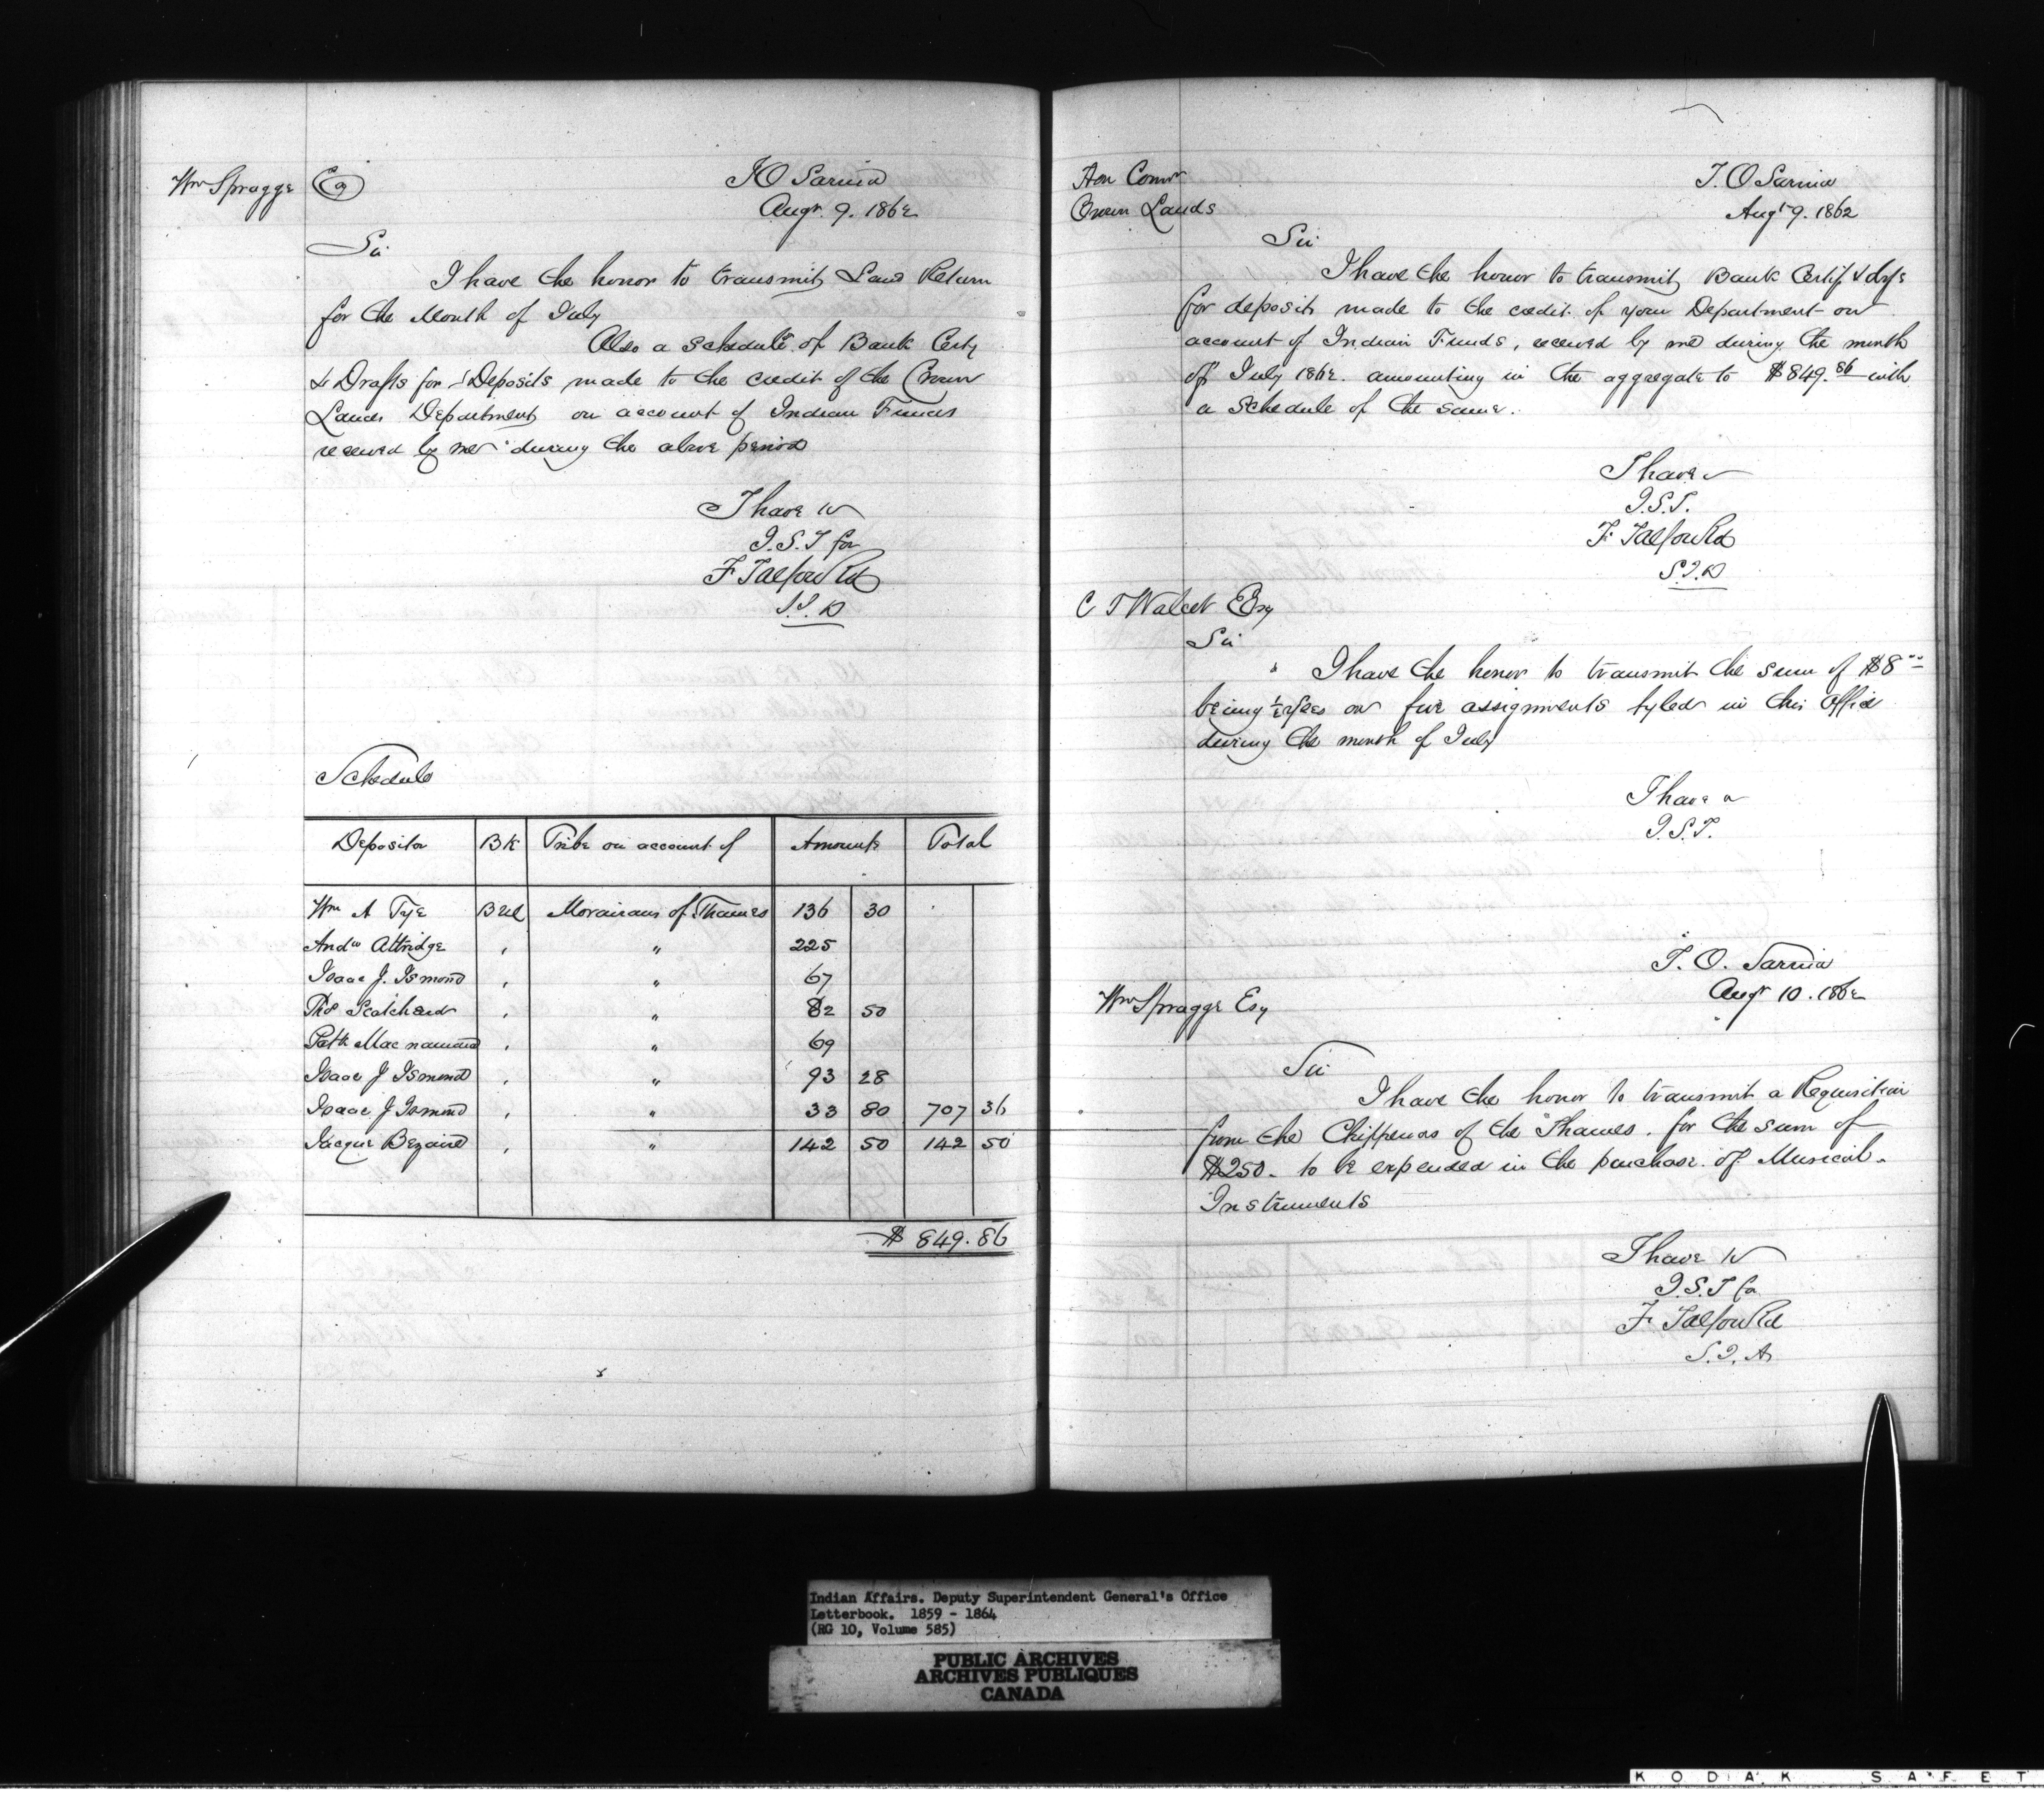 Wm Spragge Esq
I O Sarnia
Augt 9. 1862
Sir
I have the honor to transmit Land Return
for the Month of July
Also a Schedule of Bank Certf
& Drafts for Deposits made to the credit of the Crown
Lands Department on account of Indian Funds
received by me during the above period
I have &c
F Talfourd
Schedule
Depositor BK Tribe on account of Amounts Total
Wm A Tye Moravians of Thames 136 30
Andw Attridge , " 225
Isaac J. Ismond , " 67
Thos Scatcherd , " 82 50
Patk Macnamara , " 69
Isaac J Ismond , " 93 28
Isaac J Ismond , " 33 80 707 36
Jacque Bezaire , " 142 50 142 50
$ 849.86
Hon Comr
Crown Lands
I. O Sarnia
Augt 9. 1862
Sir
I have the honor to transmit Bank Certif & dfts
for deposits made to the credit of your Department on
account of Indian Funds, received by me during the month
of July 1862. amounting in the aggregate to $849.86 with
a Schedule of the same.
I have
F Talfourd
C T Walcot Esq
Sir
I have the honor to transmit the sum of $8
being ½ fees on five assignments fyled in this Office
during the month of July
I have
I. O. Sarnia
Augt 10. 1862
Wm Spragge Esq
Sir
I have the honor to transmit a Requisition
from the Chippewas of the Thames, for the sum of
$250 - to be expended in the purchase of Musical
Instruments
I have &c
F Talfourd
Indian Affairs. Deputy Superintendent General's Office
Letterbook. 1859 - 1864
(RG 10, Volume 585)
PUBLIC ARCHIVES
ARCHIVES PUBLIQUES
CANADA
KODAK SAFET